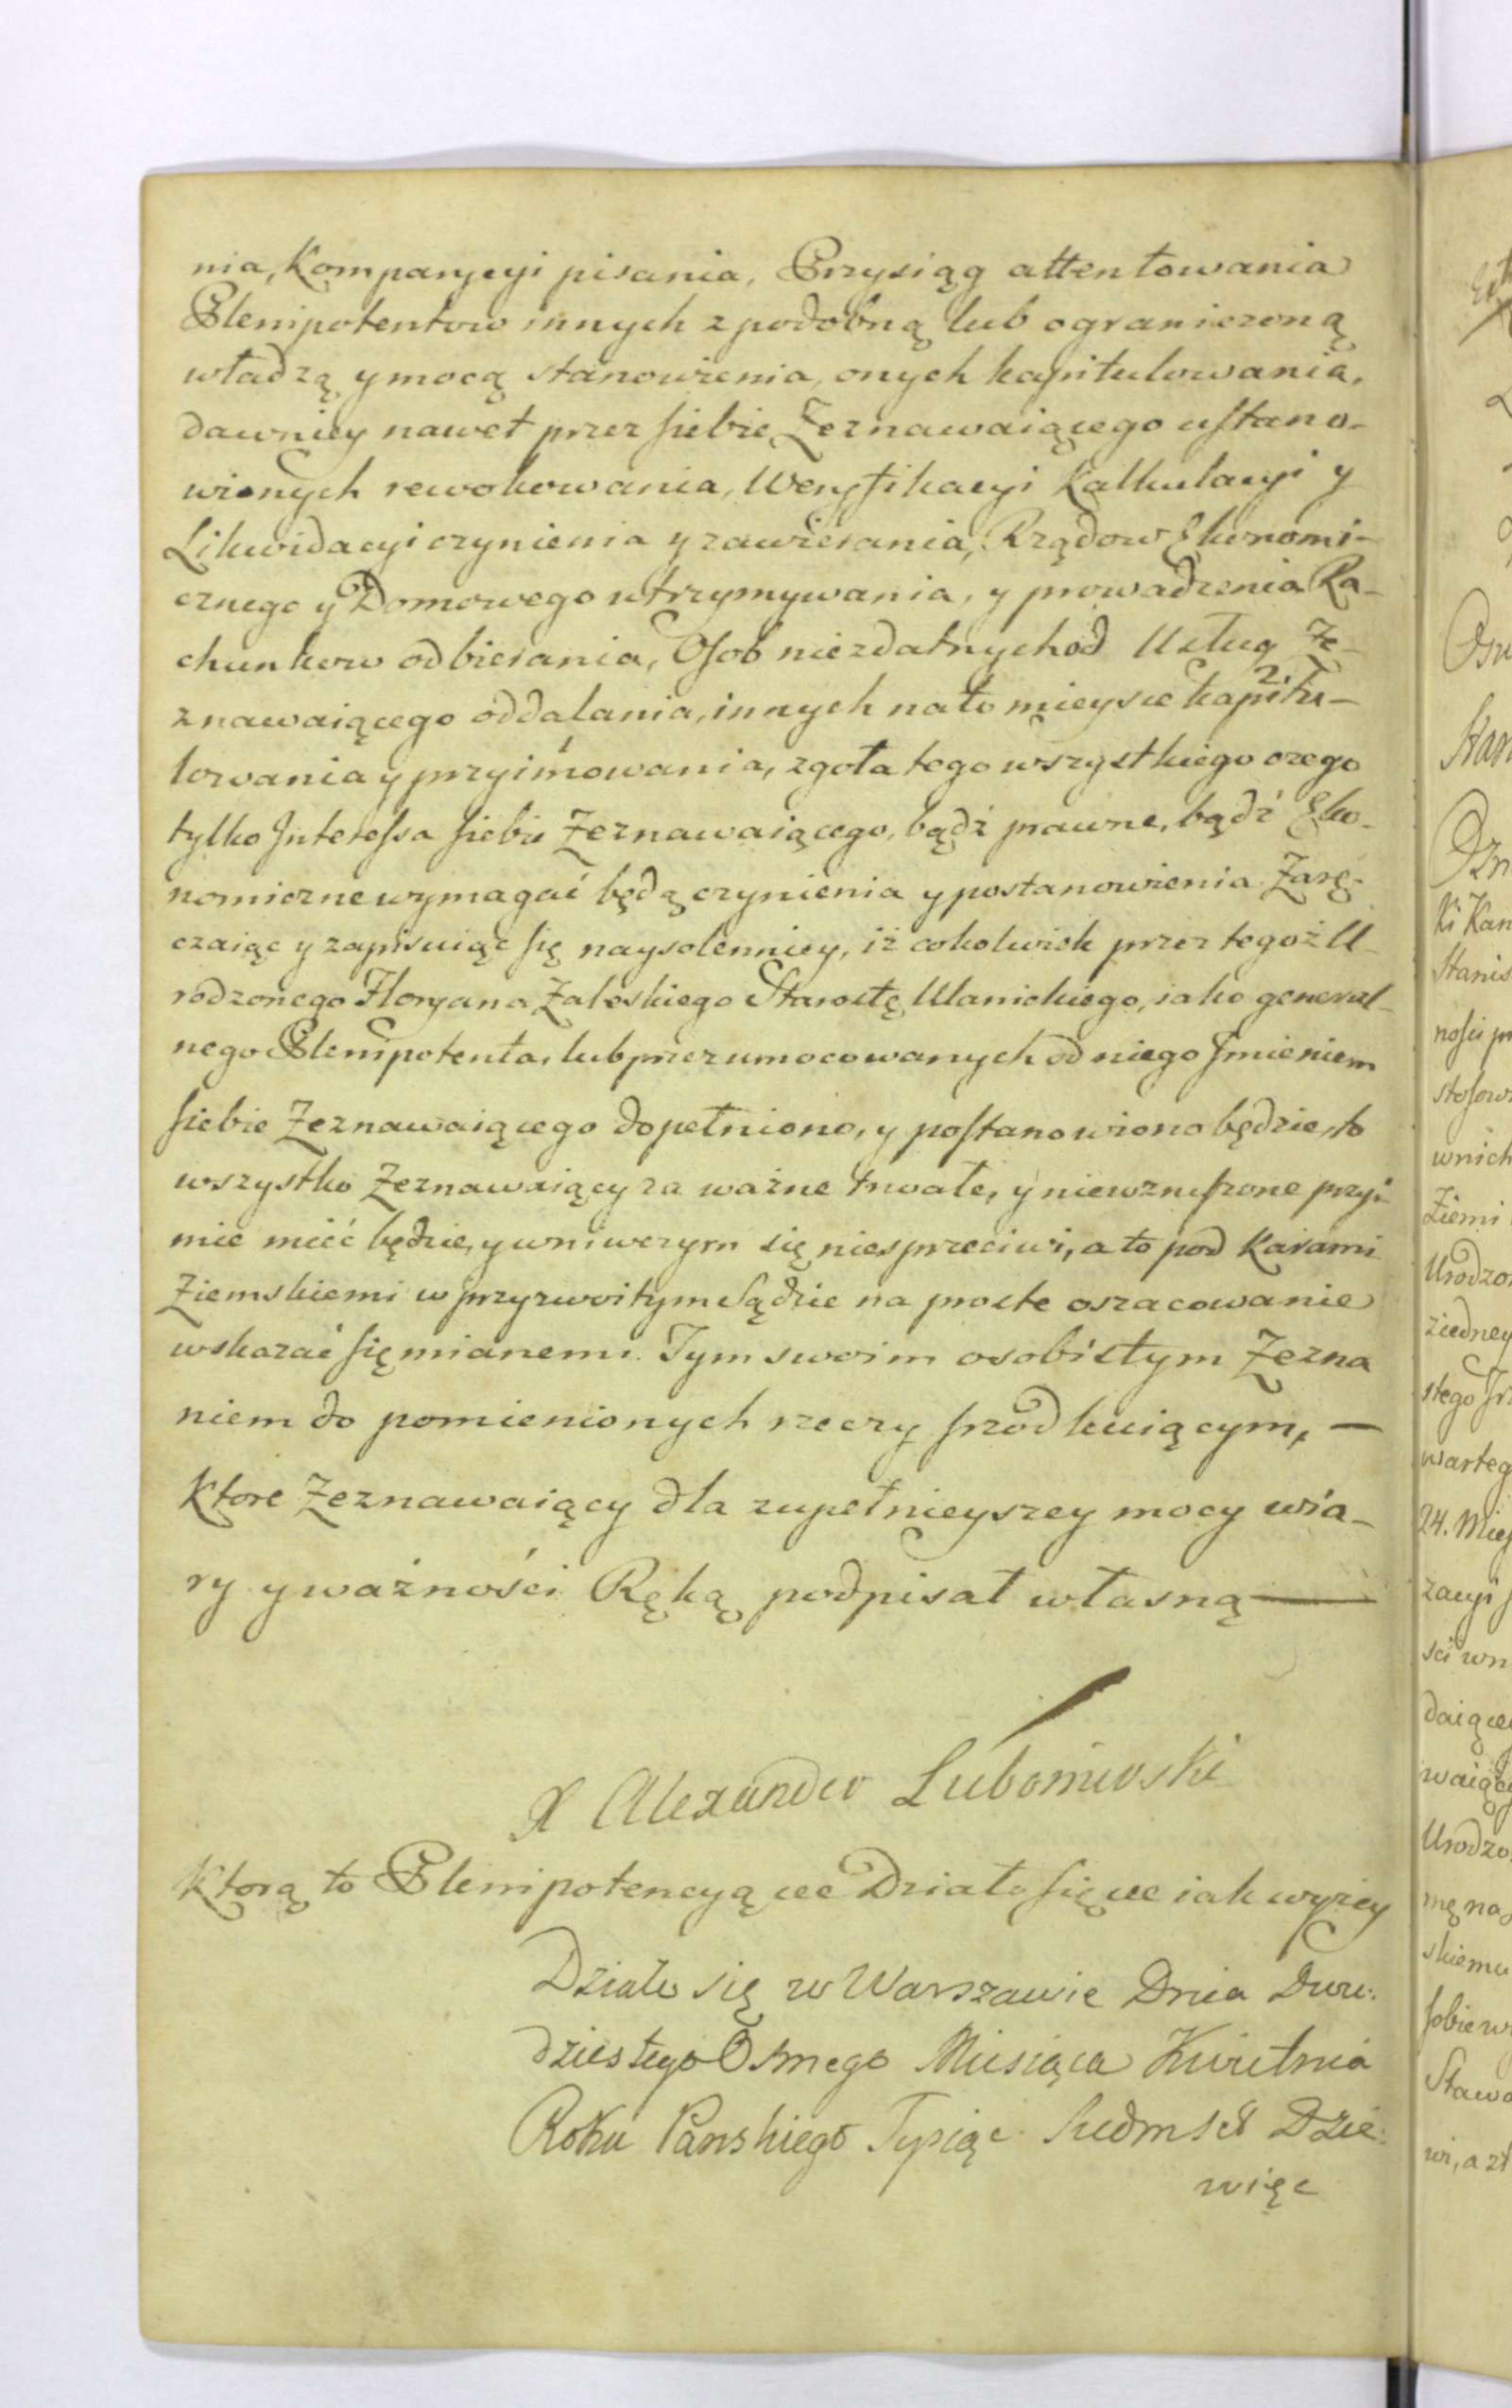 nia, Kompanycyi pisania, Przysiąg attentowania
Plenipotentow innych z podobną lub ograniczoną
władzą y mocą stanowienia, onych kapitulowania,
dawniey nawet przez siebie Zeznawaiącego ustano-
wionych rewokowania, Weryfikacyi Kalkulacyi y
Likwidacyi czynienia y zawierania, Rządow Ekonomi-
cznego y Domowego utrzymywania, y prowadzenia Ra-
chunkow odbierania, Osob niezdatnych od Usług Ze-
znawaiącego oddalania, innych na to mieysce kapitu-
lowania y przyimowania, zgoła tego wszystkiego czego
tylko Interessa siebie Zeznawaiącego, bądź prawne, bądź Eko-
nomiczne wymagać będą czynienia y postanowienia. Zarę-
czaiąc y zapisuiąc się naysolenniey, iż cokolwiek przez tegoż U-
rodzonego Floryana Zaleskiego Starostę Ulanickiego, iako general-
nego Plenipotenta, lub przez umocowanych od niego Imieniem
siebie Zeznawaiącego dopełniono, y postanowiono będzie, to
wszystko Zeznawaiący za ważne trwałe, y niewzruszone przyi-
mie mieć będzie, y wniwczym się niesprzeciwi, a to pod Karami
Ziemskiemi w przyzwoitym Sądzie na proste oszacowanie
wskazać się mianemi. Tym swoim osobistym Zezna
niem do pomienionych rzeczy srzodkuiącym, —
Ktore Zeznawaiący dla zupełnieyszey mocy wia-
ry y ważności Ręką podpisał własną —
X Alexander Lubomirski
Ktorą to Plenipotencyą etc Działo się etc iak wyzey
Działo się w Warszawie Dnia Dwu-
dziestego Osmego Miesiąca Kwietnia
Roku Panskiego Tysiąc Siedmset Dzie-
więc